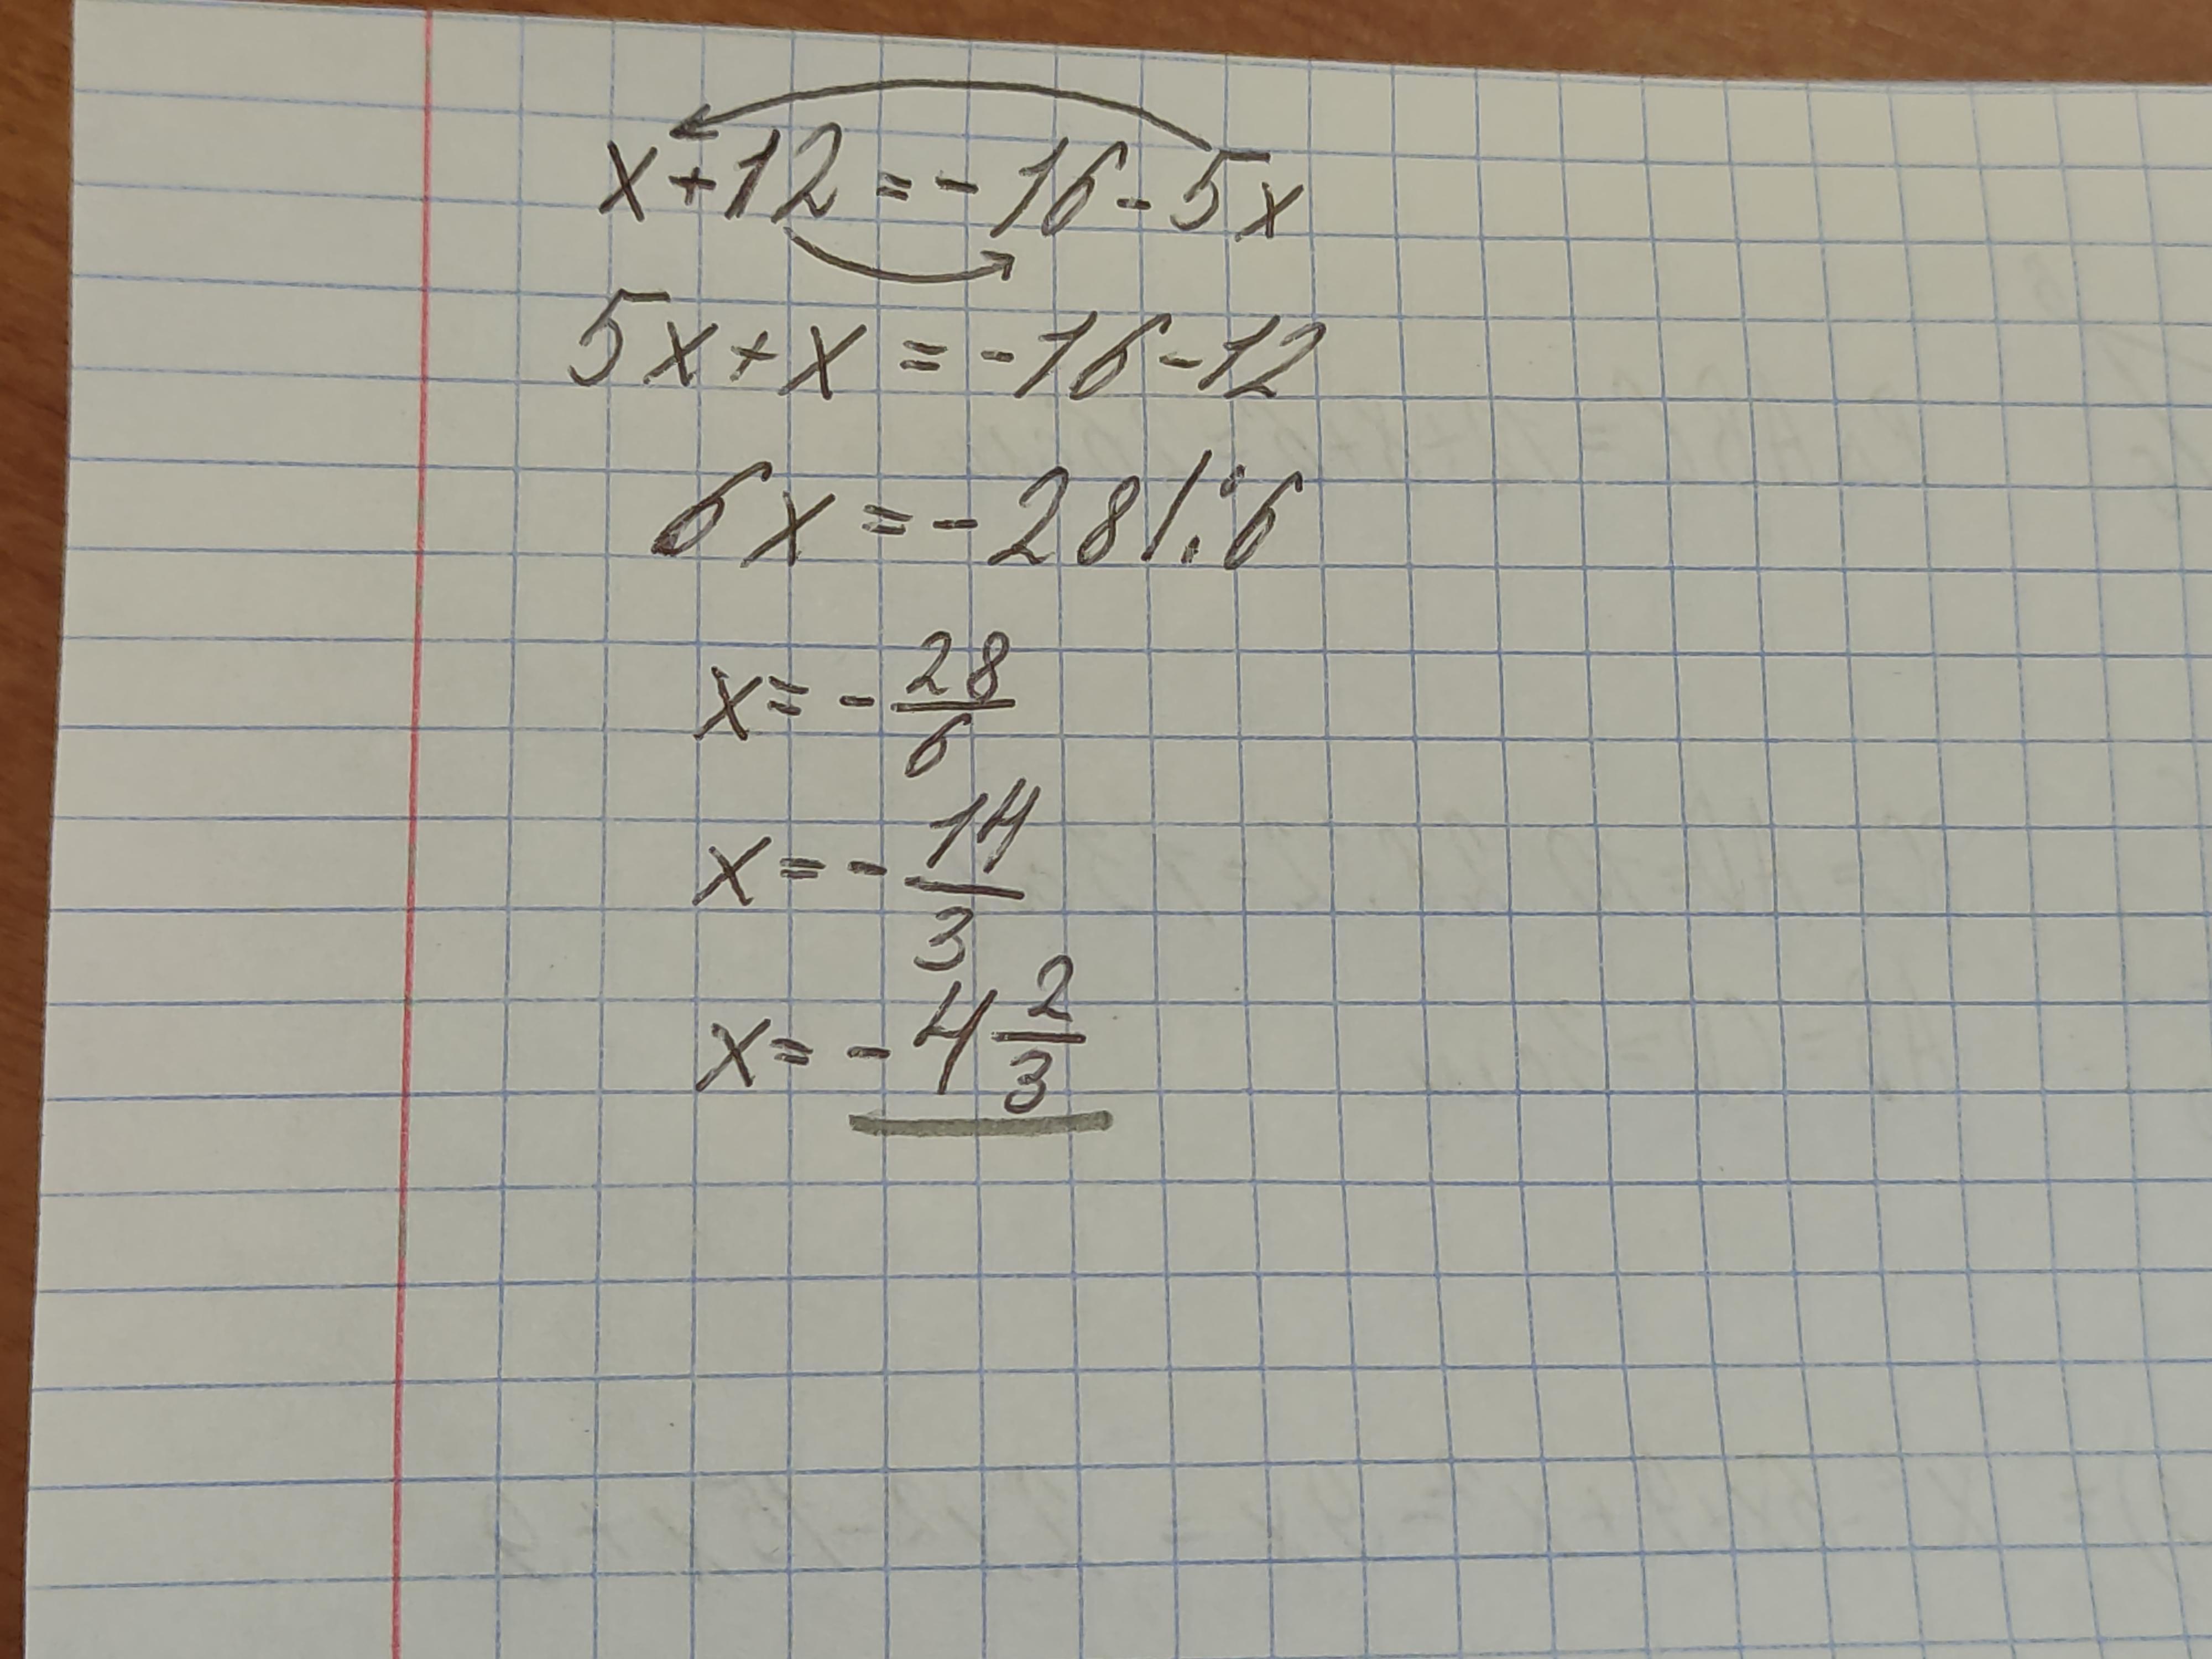 x+12=-16-5x
5x+x=-16-12
6x=-28|:6
x=-28/6
x=-14/3
x=-4 2/3